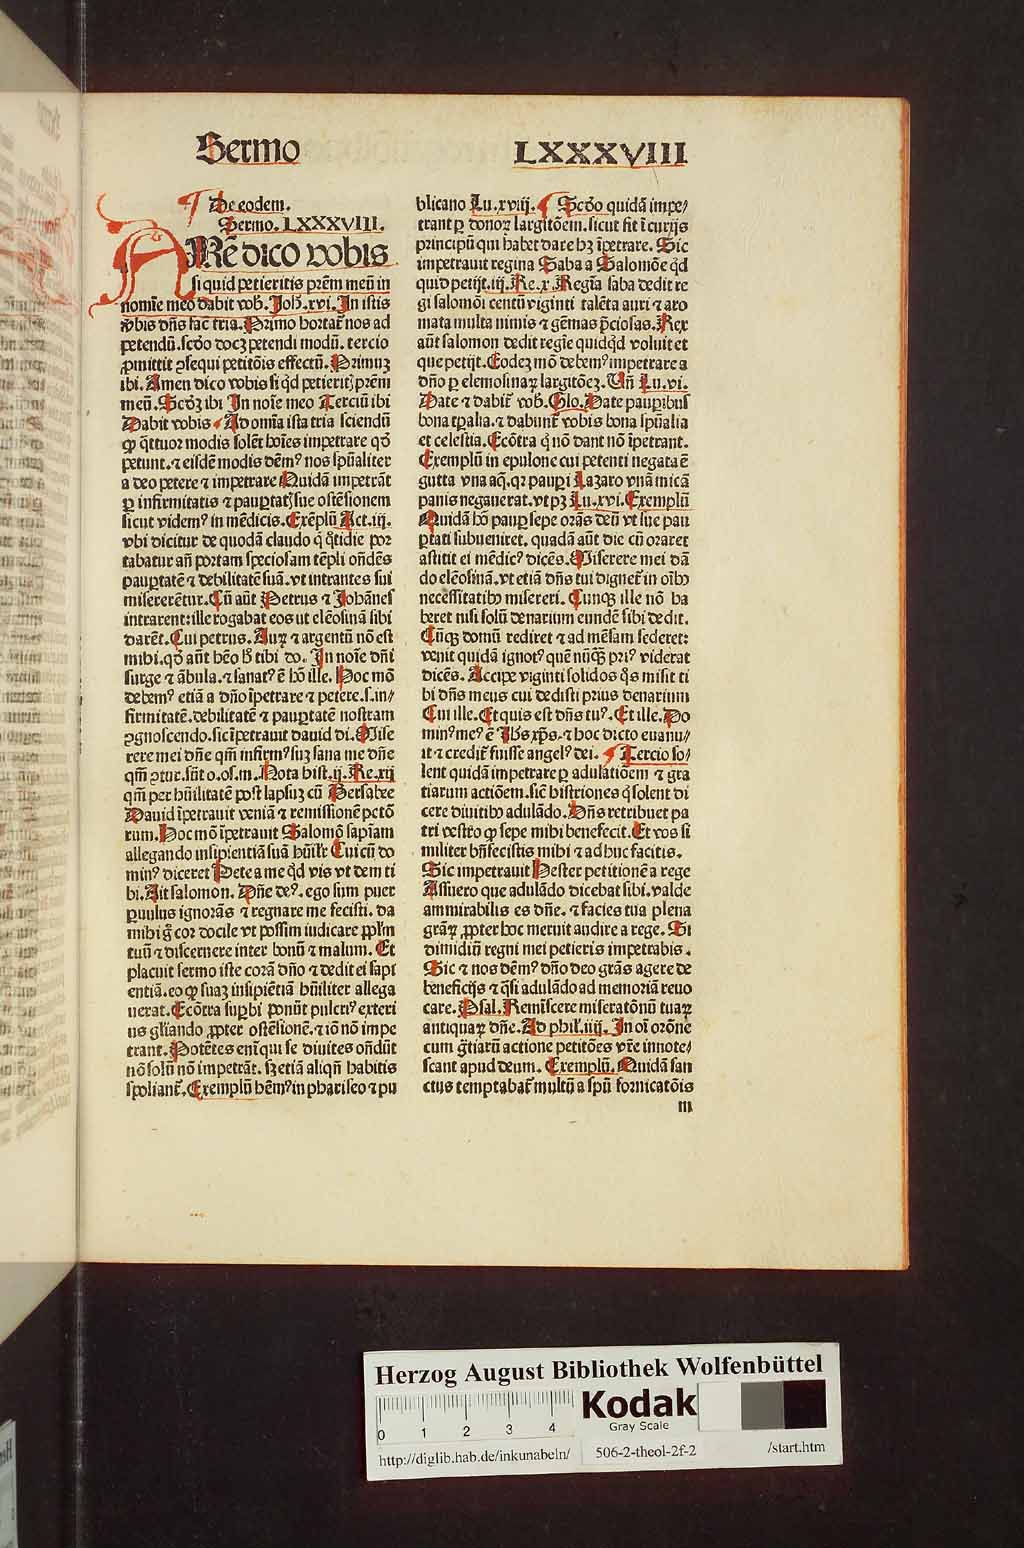 Sermo LXXXVIII
¶ De eodem.
Sermo. LXXXVIII.
AMẼ dico vobis
si quid petieritis prẽm meũ in
nomĩe meo dabit vob̾. Joh̾. xvi. In istis
v̾bis dñs fac̃ tria. Primo hortat̃ nos ad
petendũ. scd̾o docꝫ petendi modũ. tercio
ꝓmittit ꝓsequi petitõis effectũ. Primuꝫ
ibi. Amen dico vobis si qd̾ petieritꝭ prẽm
meũ. Scd̾ꝫ ibi In noĩe meo Terciũ ibi
Dabit vobis ¶ Ad omĩa ista tria sciendũ
ꝙ q̃ttuor modis solẽt hoĩes impetrare qd̾
petunt. ⁊ eisdẽ modis dẽmꝰ nos spũaliter
a deo petere ⁊ impetrare Quidã impetrãt
ꝑ infirmitatis ⁊ pauꝑtatꝭ sue ostẽsionem
sicut videmꝰ in mẽdicis. Exẽplũ Act. iij.
vbi dicitur de quodã claudo q̃ q̃tidie por
tabatur añ portam speciosam tẽpli oñdẽs
pauꝑtatẽ ⁊ debilitatẽ suã. vt intrantes sui
misererẽtur. Cũ aũt Petrus ⁊ Johãnes
intrarent: ille rogabat eos ut elẽosinã sibi
darẽt. Cui petrus. Auꝝ ⁊ argentũ nõ est
mihi. qd̾ aũt hẽo h̾ tibi do. In noĩe dñi
surge ⁊ ãbula. ⁊ sanatꝰ ẽ hõ ille. Hoc mõ
debemꝰ etiã a dño ĩpetrare ⁊ petere. s. in⸗
firmitatẽ. debilitatẽ ⁊ pauꝑtatẽ nostram
ꝯgnoscendo. sic ĩpetrauit dauid di. Mise
rere mei dñe qm̃ infirmꝰ suꝫ sana me dñe
qm̃ ꝯtur. sũt o. os. m. Nota hist. ij. Re. xij
qm̃ per hũilitatẽ post lapsuꝫ cũ Bersabee
Dauid ĩpetrauit veniã ⁊ remissionẽ pctõ
rum. Hoc mõ ĩpetrauit Salomõ sapĩam
allegando insipientiã suã hũilr̃ Cui cũ do
minꝰ diceret Pete a me qd̾ vis vt dem ti
bi. Ait salomon. Dñe deꝰ. ego sum puer
ꝑuulus ignorãs ⁊ regnare me fecisti. da
mihi g̾ cor docile vt possim iudicare ꝓpl̾m
tuũ ⁊ discernere inter bonũ ⁊ malum. Et
placuit sermo iste corã dño ⁊ dedit ei sapi
entiã. eo ꝙ suaꝫ insipiẽtiã hũiliter allega
uerat. Ecõtra suꝑbi ponũt pulcrꝰ exteri
us gl̾iando ꝓpter ostẽsionẽ. ⁊ iõ nõ impe
trant. Potẽtes enĩ qui se diuites oñdũt
nõ solũ nõ impetrãt. sꝫ etiã aliqñ habitis
spoliant̃. Exemplũ hẽmꝰ in phariseo ⁊ pu
blicano Lu. xviij. ¶ Scd̾o quidã impe⸗
trant ꝑ donoꝝ largitõem. sicut fit ĩ curijs
principũ qui habet dare hꝫ ĩpetrare. Sic
impetrauit regina Saba a Salomõe qd̾
quid petijt. iij. Re. x. Regĩa saba dedit re
gi salomõi centũ viginti talẽta auri ⁊ aro
mata multa nimis ⁊ gẽmas p̃ciosas. Rex
aũt salomon dedit regĩe quidqd̾ voluit et
que petijt. Eodeꝫ mõ debemꝰ impetrare a
dño ꝑ elemosinaꝝ largitõeꝫ. Vñ Lu. vi.
Date ⁊ dabit̃ vob̾. Glo. Date pauꝑibus
bona tꝑalia. ⁊ dabunt̃ vobis bona spũalia
et celestia. Ecõtra q̃ nõ dant nõ ĩpetrant.
Exemplũ in epulone cui petenti negata ẽ
gutta vna aq̃. qꝛ pauꝑi Lazaro vnã micã
panis negauerat. vt pꝫ Lu. xvi. Exemplũ
Quidã hõ pauꝑ sepe orãs deũ vt sue pau
ꝑtati subueniret. quadã aũt die cũ oraret
astitit ei mẽdicꝰ dicẽs. Miserere mei dã
do elẽosinã. vt etiã dñs tui dignet̃ in oĩbꝰ
necẽssitatibꝰ misereri. Cunqꝫ ille nõ ha
beret nisi solũ denarium eundẽ sibi dedit.
Cũqꝫ domũ rediret ⁊ ad mẽsam sederet:
venit quidã ignotꝰ quẽ nũq̃ꝫ priꝰ viderat
dicẽs. Accipe viginti solidos q̃s misit ti
bi dñs meus cui dedisti prius denarium
Cui ille. Et quis est dñs tuꝰ. Et ille. Do
minꝰ meꝰ ẽ Ihs̃ xp̃s. ⁊ hoc dicto euanu⸗
it ⁊ credit̃ fuisse angelꝰ dei. ¶ Tercio so⸗
lent quidã impetrare ꝑ adulatiõem ⁊ gra
tiarum actiõem. sic̃ histriones q̃ solent di
cere diuitibꝰ adulãdo. Dñs retribuet pa
tri vestro ꝙ sepe mihi benefecit. Et vos si
militer bñfecistis mihi ⁊ adhuc facitis.
Sic impetrauit Hester petitionẽ a rege
Assuero que adulãdo dicebat sibi. valde
ammirabilis es dñe. ⁊ facies tua plena
grãꝝ ꝓpter hoc meruit audire a rege. Si
dimidiũ regni mei petieris impetrabis.
Sic ⁊ nos dẽmꝰ dño deo grãs agere de
beneficijs ⁊ q̃si adulãdo ad memoriã reuo
care. Psal. Remĩscere miseratõnũ tuaꝝ
antiquaꝝ dñe. Ad phil̾. iiij. In oĩ orõne
cum g̃tiarũ actione petitões vr̃e innote⸗
scant apud deum. Exemplũ. Quidã san
ctus temptabat̃ multũ a spũ fornicatõis
m
Herzog August Bibliothek Wolfenbüttel
0 1 2 3 4
Kodak
Gray Scale
http://diglib.hab.de/inkunabeln/ 506-2-theol-2f-2 /start.htm